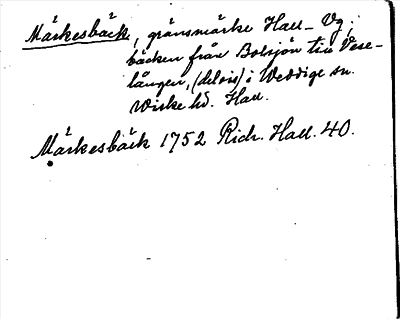 Märkesbäck, gränsmärke Hall - Vg;
bäcken från Bolsjön till Vese-
lången, (delvis) i Veddige sn.
Viske hd. Hall.
Märkesbäck 1752 Rich. Hall. 40.